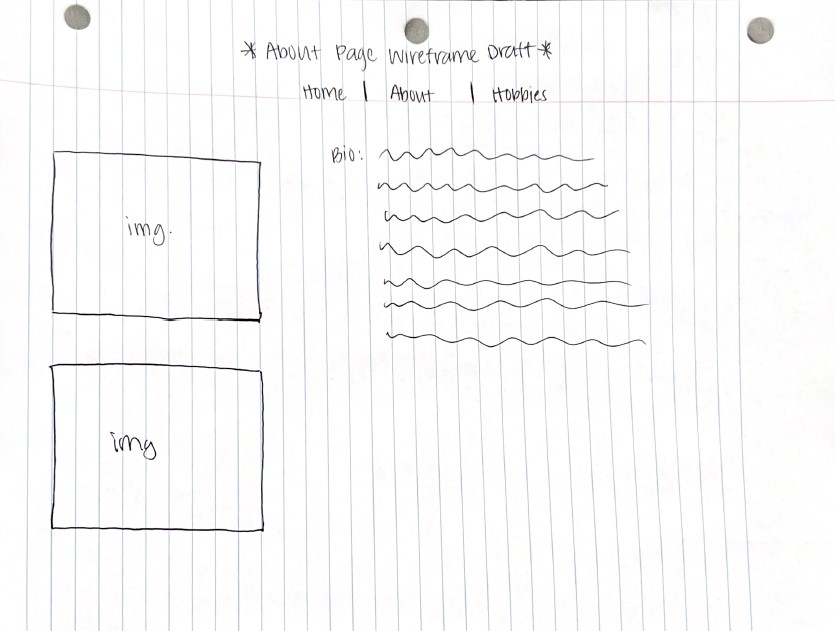 * About Page Wireframe Draft *
Home | About | Hobbies
Bio:
img.
img